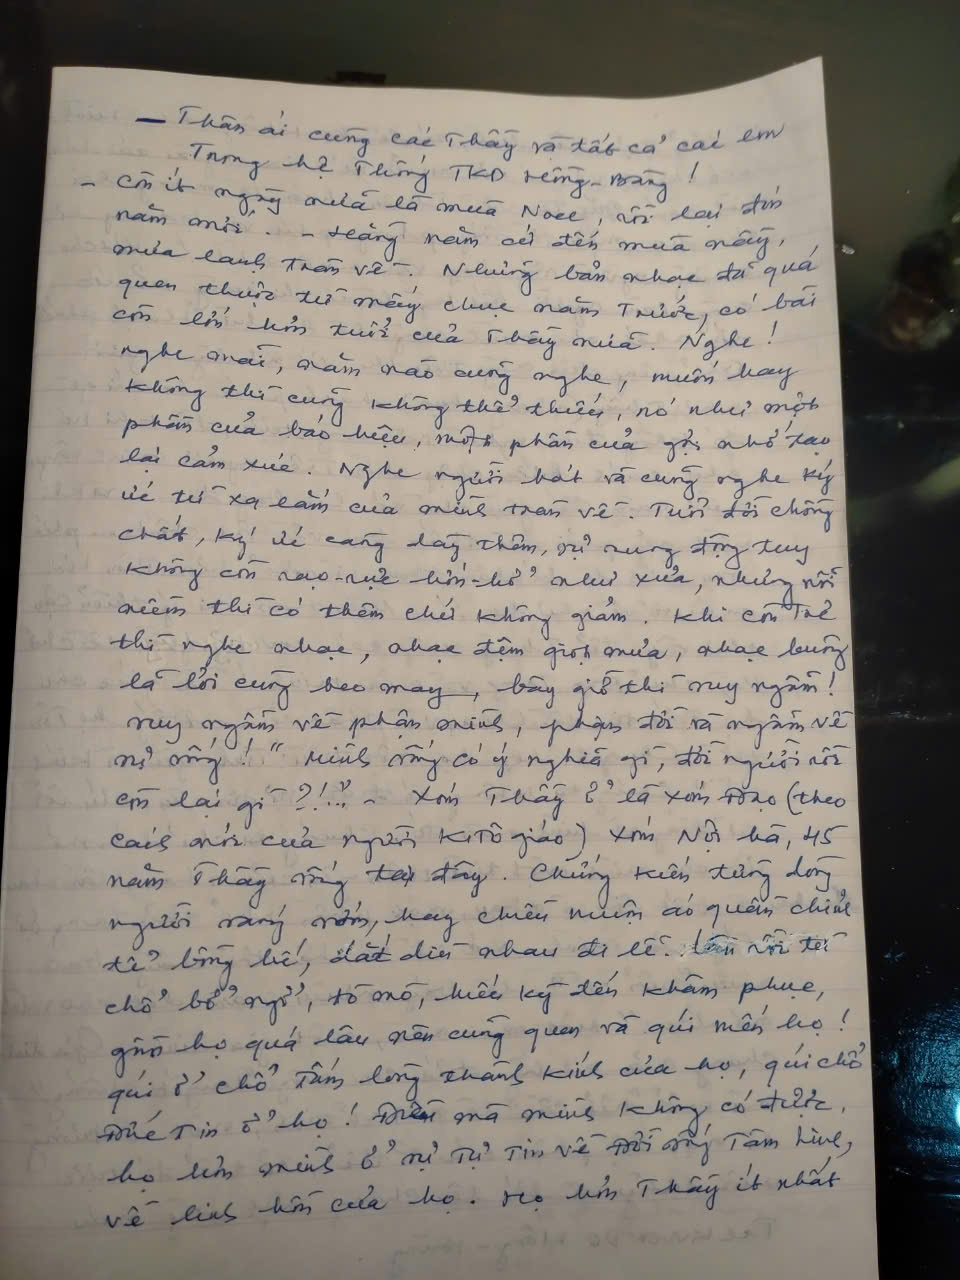 – Thân ái cùng các Thầy và tất cả các em
Trong hệ Thống TKD Hồng-Bàng !
– Còn ít ngày nữa là mùa Noel, rồi lại đón
năm mới. – Hàng năm cứ đến mùa này,
mùa lạnh tràn về. Những bản nhạc đã quá
quen thuộc từ mấy chục năm Trước, có bài
còn lớn hơn tuổi của Thầy nữa. Nghe !
nghe mãi, năm nào cũng nghe, muốn hay
không thì cũng không thể thiếu, nó như một
phần của báo hiệu, một phần của gợi nhớ tạo
lại cảm xúc. Nghe người hát và cũng nghe ký
ức từ xa lắm của mình tràn về. Tuổi đời chồng
chất, ký ức càng dày thêm, sự rung động tuy
không còn rạo-rực hớn-hở như xưa, nhưng nỗi
niềm thì có thêm chứ không giảm. Khi còn Trẻ
thì nghe nhạc, nhạc đệm giọt mưa, nhạc buông
lả lơi cùng heo may, bây giờ thì suy ngẫm !
suy ngẫm về phận mình, phận đời và ngẫm về
sự sống ! " Mình sống có ý nghĩa gì, đời người rồi
còn lại gì ?!.." – Xóm Thầy ở là xóm Đạo (theo
cách nói của người KiTô giáo) Xóm Nội hà, 45
năm Thầy sống tại đây. Chứng kiến từng dòng
người sáng sớm, hay chiều muộn áo quần chỉnh
tề bồng bế, dắt díu nhau đi lễ. rồi từ
chỗ bỡ ngỡ, tò mò, hiếu kỳ đến khâm phục,
gần họ quá lâu nên cũng quen và quí mến họ !
quí ở chỗ Tấm lòng thành kính của họ, quí chỗ
Đức Tin ở họ ! Điều mà mình không có được,
họ hơn mình ở sự Tự Tin về Đời sống Tâm linh,
về linh hồn của họ. Họ hơn Thầy ít nhất